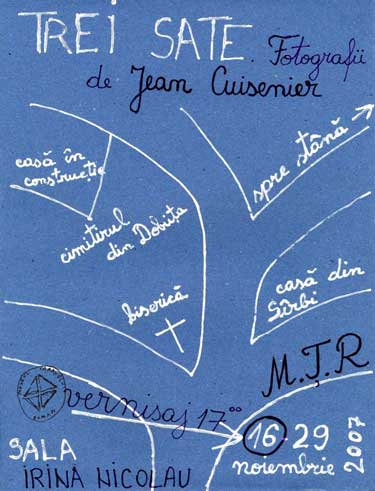 TREI SATE. Fotografii
de Jean Cuisenier
casă în
construcție
spre stână
cimitirul
din Dobrița
casă din
Sîrbi
biserică
M.Ț.R
vernisaj 17⁰⁰
16 29
noiembrie
2007
SALA
IRINA NICOLAU